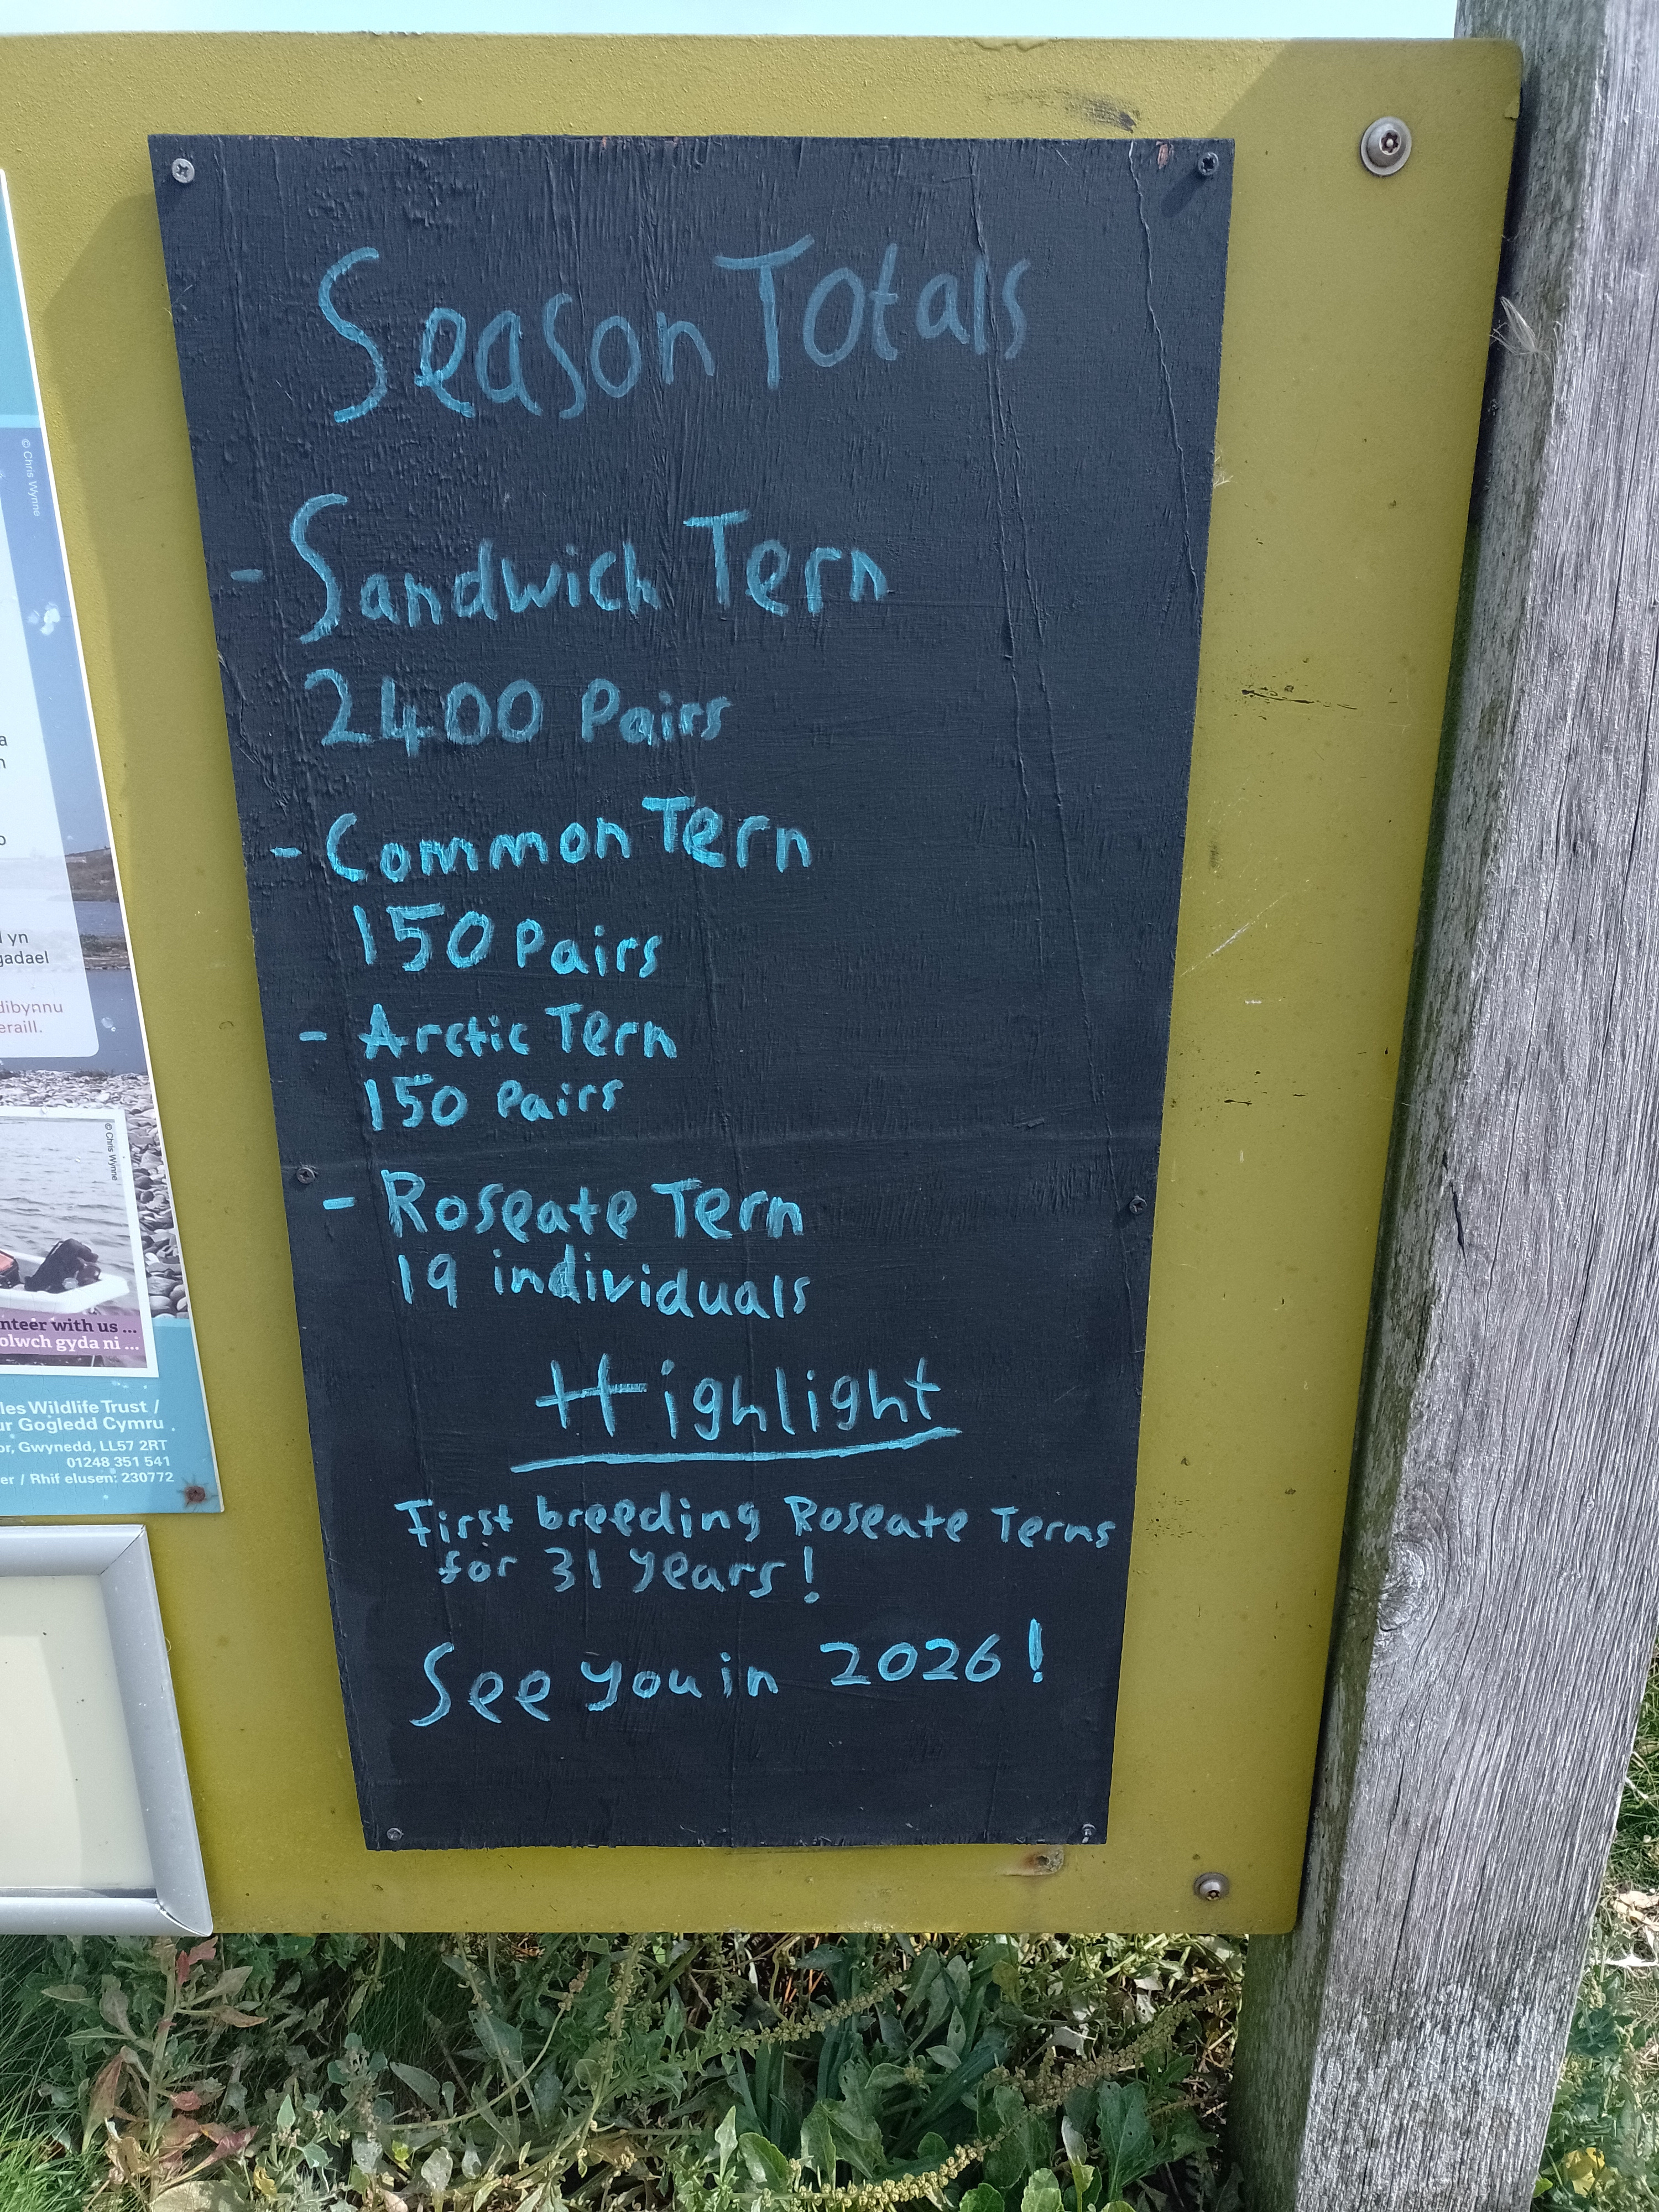 Season Totals
- Sandwich Tern
2400 Pairs
- Common Tern
150 Pairs
- Arctic Tern
150 Pairs
- Roseate Tern
19 individuals
Highlight
First breeding Roseate Terns
for 31 years!
See you in 2026!
© Chris Wynne
a
n
o
yn
gadael
dibynnu
eraill.
© Chris Wynne
nteer with us ...
olwch gyda ni ...
les Wildlife Trust /
ur Gogledd Cymru
or, Gwynedd, LL57 2RT
01248 351 541
er / Rhif elusen: 230772